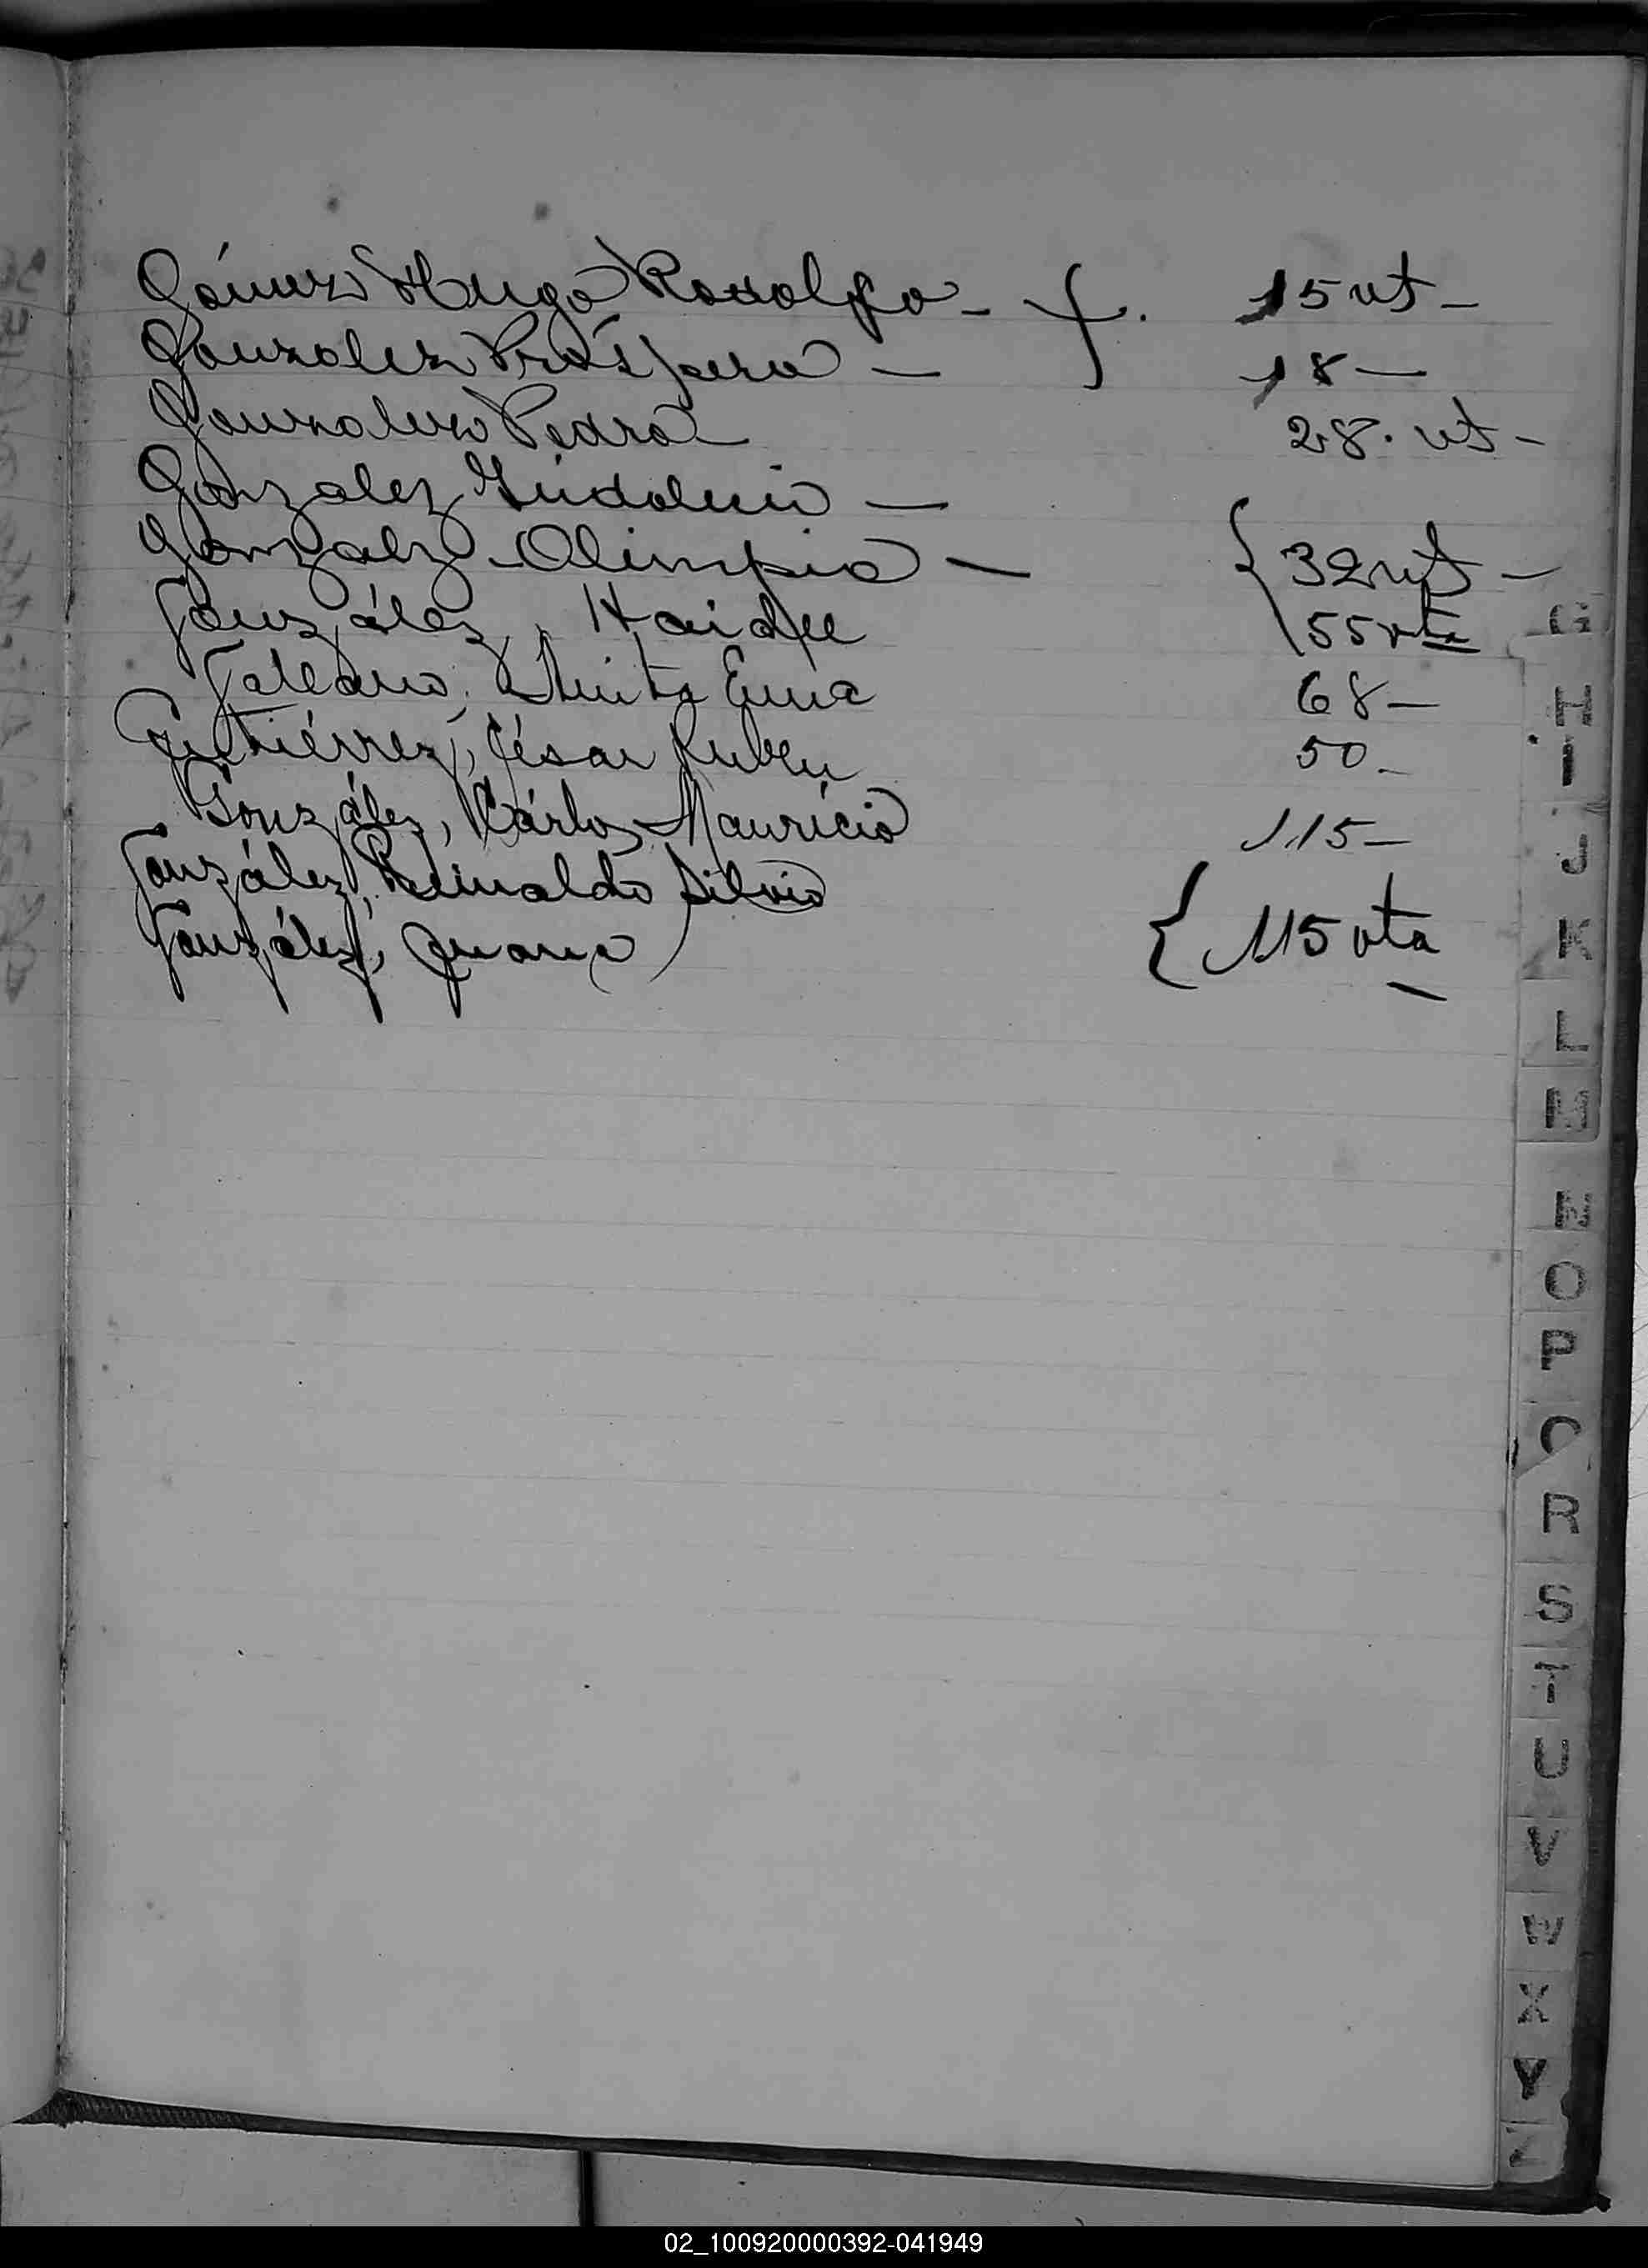 Gómez Hugo Rodolfo - f. 15 vt -
Gonzalez Próspero - 18 -
Gonzalez Pedro 28. vt -
Gonzalez -
Gonzalez Olimpia - { 32 vt -
González, Haidee 55 vta
Galeano, Anita Ema 68 -
Gutiérrez, César Ruben 50 -
González, Cárlos Mauricio 115 -
González, Reinaldo Silvio
González, Juana { 115 vta
H
I
J
K
L
M
N
O
P
R
S
T
U
V
W
X
Y
02_100920000392-041949